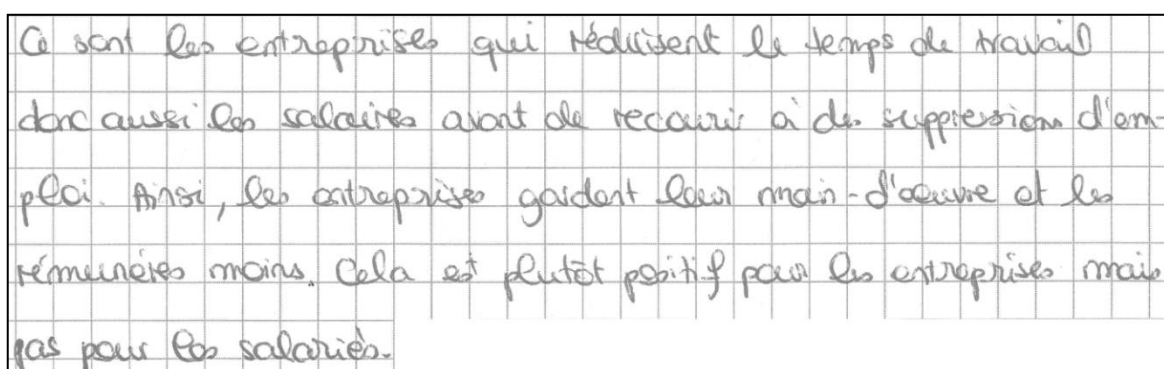 Ce sont les entreprises qui réduisent le temps de travail
donc aussi les salaires avant de recourir à des suppressions d'em-
ploi. Ainsi, les entreprises gardent leur main-d'œuvre et les
rémunéres moins. Cela est plutôt positif pour les entreprises mais
pas pour les salariés.